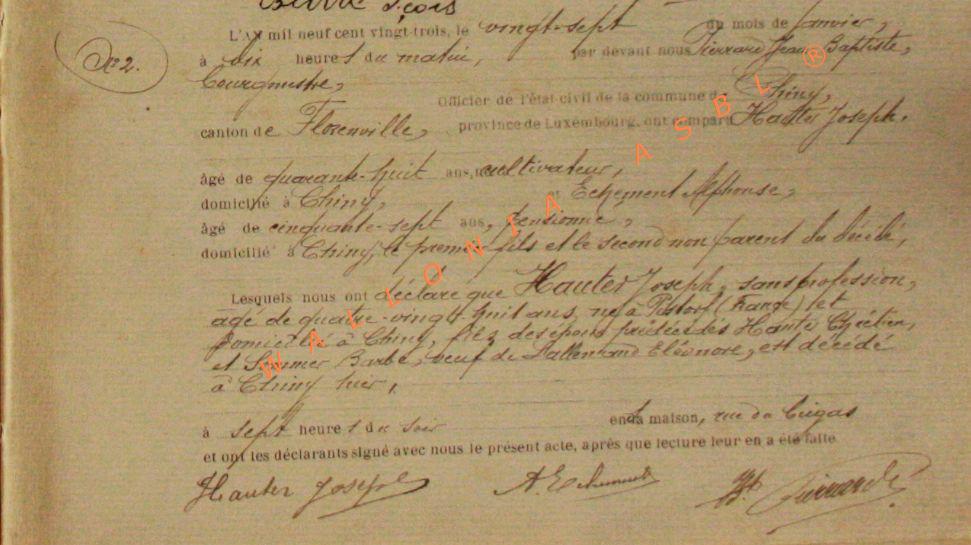 L'AN mil neuf cent vingt-trois, le vingt-sept du mois de Janvier,
N° 2.
à dix heures du matin, par devant nous Pierrard Jean Baptiste,
Bourgmestre,
Officier de l'état civil de la commune de Chiny,
canton de Florenville, province de Luxembourg, ont comparu Hauter Joseph,
âgé de quarante-huit ans, cultivateur,
domicilié à Chiny, et Echement Alphonse,
âgé de cinquante-sept ans, pensionné,
domicilié à Chiny, le premier fils et le second non parent du décédé,
Lesquels nous ont déclaré que Hauter Joseph, sans profession,
âgé de quatre-vingt-huit ans, né à (France) et
domicilié à Chiny, fils des époux des Hauter Chrétien,
et Barbe, veuf de Lallemand Eléonore, est décédé
à Chiny hier,
à sept heures du soir en sa maison, rue du
et ont les déclarants signé avec nous le présent acte, après que lecture leur en a été faite
Hauter Joseph A. Echement Bte Pierrard
WALLONIA ASBL ®